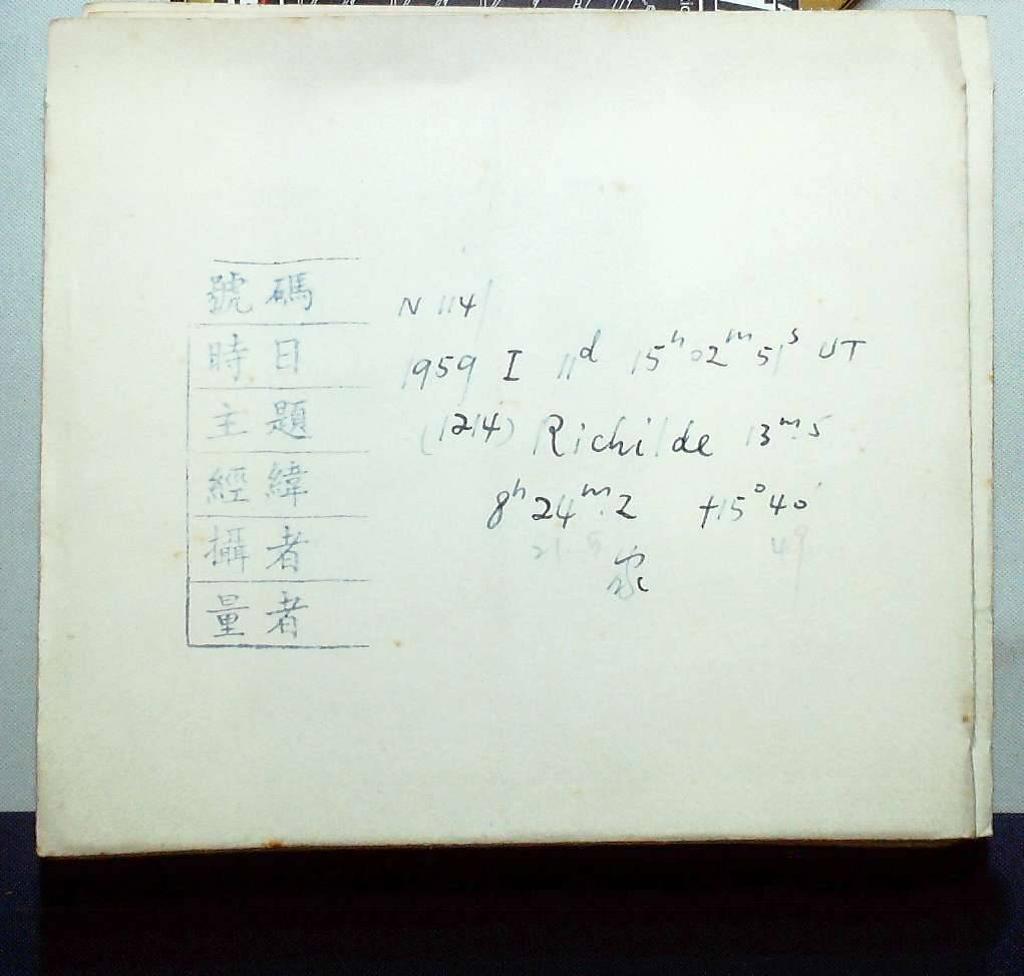 號碼 N 114
時日 1959 I 11d 15h 02m 51s UT
主題 (1214) Richilde 13m.5
經緯 8h 24m.2 +15° 40'
49
攝者 家
量者